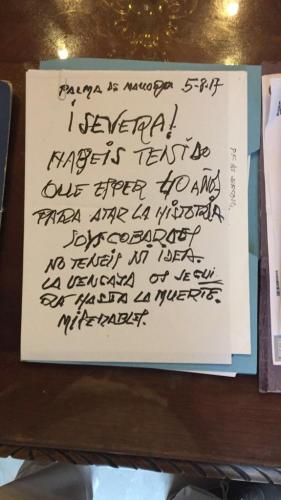 PALMA DE MALLORCA 5-8-17
¡SEVERA!
HABEIS TENIDO
QUE ESPER 40 AÑOS
PARA ATAR LA HISTORIA
SOIS COBARDES
NO TENEIS NI IDEA.
LA VENGAZA OS SEGUI
RA HASTA LA MUERTE.
MISERABLES.